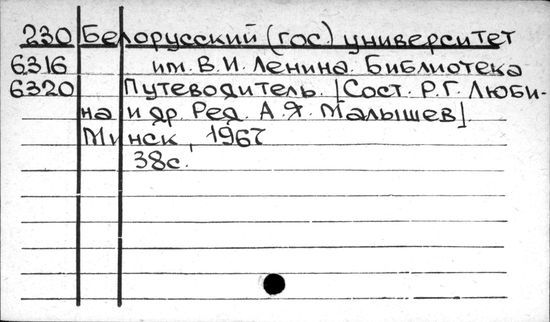 230 Белорусский (гос) университет
6316 им. В. И. Ленина. Библиотека
6320 Путеводитель. [Сост. Р. Г. Люби-
на и др. Ред. А. Я. Малышев]
Минск, 1967
38с.